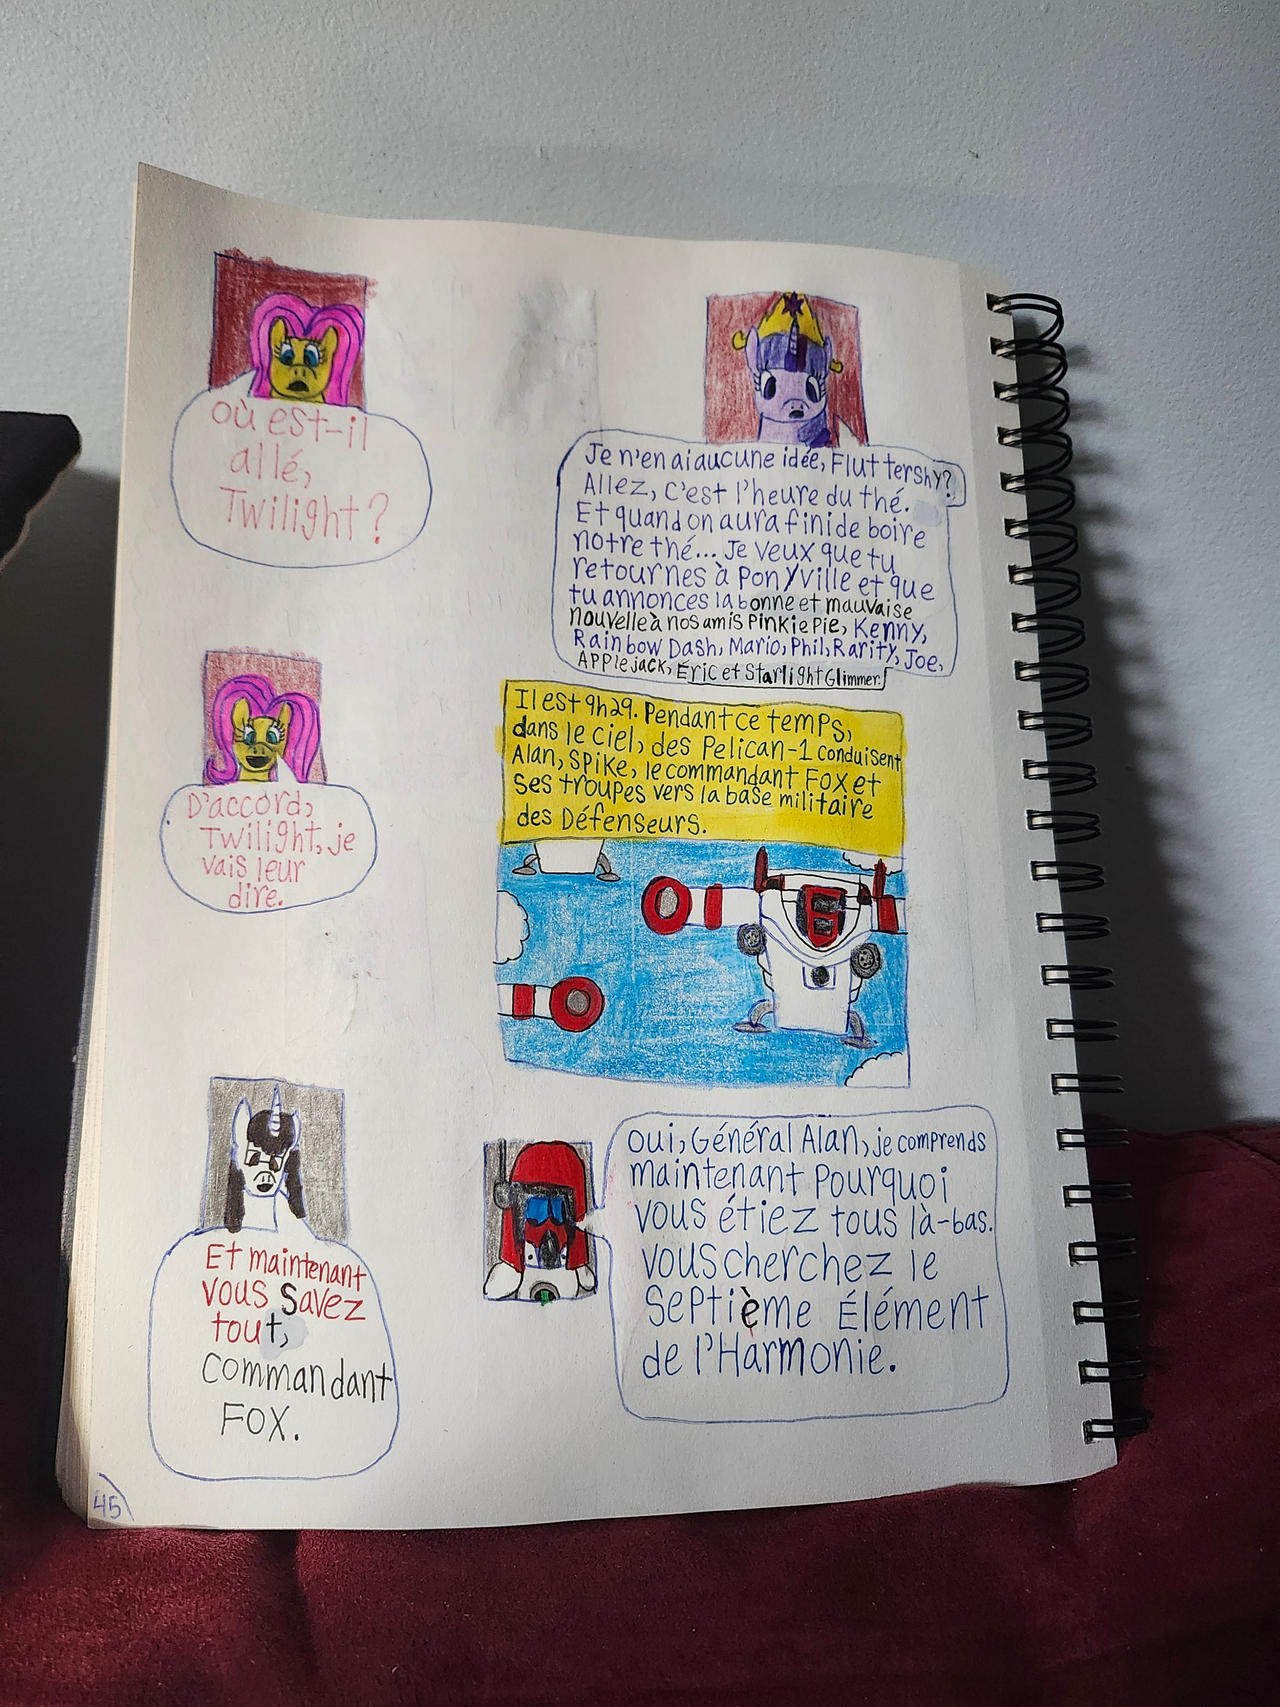 où est-il
allé,
Twilight?
Je n'en ai aucune idée, Fluttershy?
Allez, c'est l'heure du thé.
Et quand on aura fini de boire
notre thé... Je veux que tu
retournes à Ponyville et que
tu annonces la bonne et mauvaise
nouvelle à nos amis Pinkie Pie, Kenny,
Rainbow Dash, Mario, Phil, Rarity, Joe,
Applejack, Eric et Starlight Glimmer.
D'accord,
Twilight, je
vais leur
dire.
Il est 9h29. Pendant ce temps,
dans le ciel, des Pelican-1 conduisent
Alan, Spike, le commandant Fox et
ses troupes vers la base militaire
des Défenseurs.
Et maintenant
vous savez
tout,
commandant
FOX.
Oui, Général Alan, je comprends
maintenant pourquoi
vous étiez tous là-bas.
Vous cherchez le
septième Élément
de l'Harmonie.
45